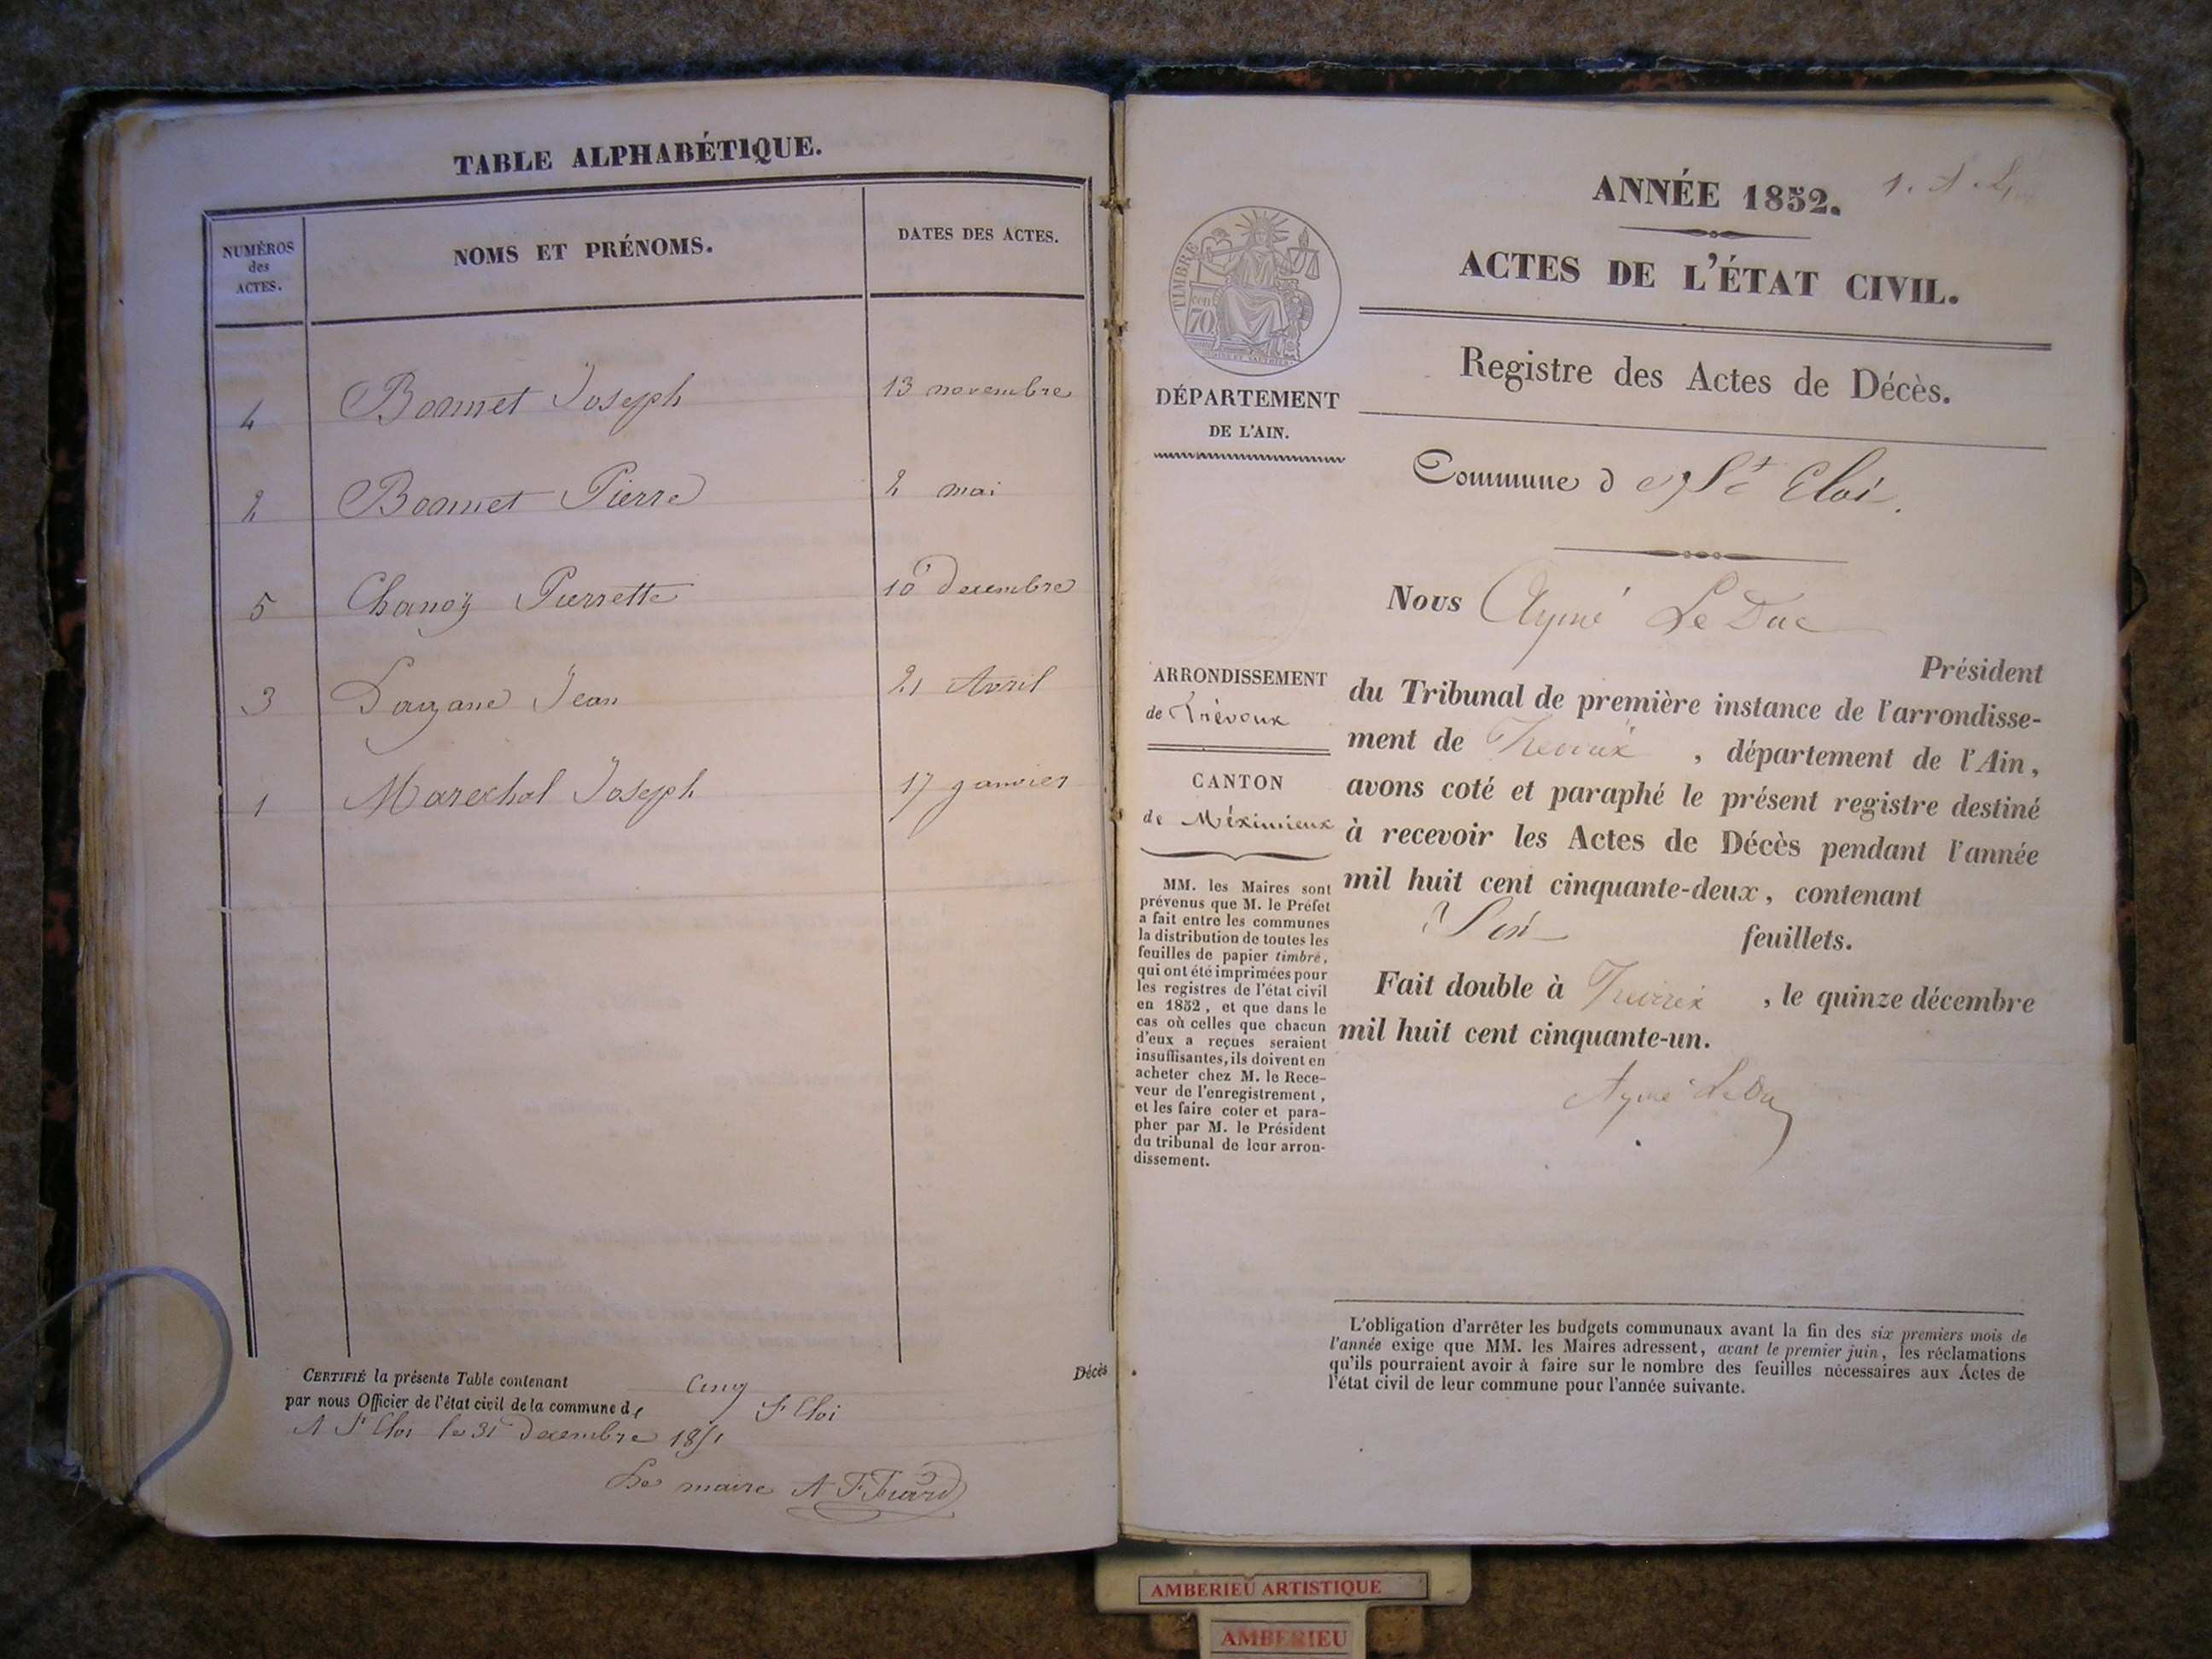 TABLE ALPHABÉTIQUE.
NUMÉROS
des
ACTES.
NOMS ET PRÉNOMS.
DATES DES ACTES.
4 Bonnet Joseph 13 novembre
2 Bonnet Pierre 2 mai
5 Chanoz Pierrette 10 decembre
3 Jean 21 Avril
1 Marechal Joseph 17 janvier
CERTIFIÉ la présente Table contenant Cinq Décès
par nous Officier de l'état civil de la commune de St Eloi
A St Eloi le 31 Decembre 1851
Le maire
1.
ANNÉE 1852.
ACTES DE L'ÉTAT CIVIL.
Registre des Actes de Décès.
TIMBRE
70
DÉPARTEMENT
DE L'AIN.
Commune de St Eloi.
Nous Aymé Le Duc
Président
du Tribunal de première instance de l'arrondisse-
ment de Trevoux, département de l'Ain,
avons coté et paraphé le présent registre destiné
à recevoir les Actes de Décès pendant l'année
mil huit cent cinquante-deux, contenant
feuillets.
Fait double à Trevoux, le quinze décembre
mil huit cent cinquante-un.
Aymé LeDuc
ARRONDISSEMENT
de Trévoux
CANTON
de Méximieux
MM. les Maires sont
prévenus que M. le Préfet
a fait entre les communes
la distribution de toutes les
feuilles de papier timbré,
qui ont été imprimées pour
les registres de l'état civil
en 1852, et que dans le
cas où celles que chacun
d'eux a reçues seraient
insuffisantes, ils doivent en
acheter chez M. le Rece-
veur de l'enregistrement,
et les faire coter et para-
pher par M. le Président
du tribunal de leur arron-
dissement.
L'obligation d'arrêter les budgets communaux avant la fin des six premiers mois de
l'année exige que MM. les Maires adressent, avant le premier juin, les réclamations
qu'ils pourraient avoir à faire sur le nombre des feuilles nécessaires aux Actes de
l'état civil de leur commune pour l'année suivante.
AMBERIEU ARTISTIQUE
AMBERIEU